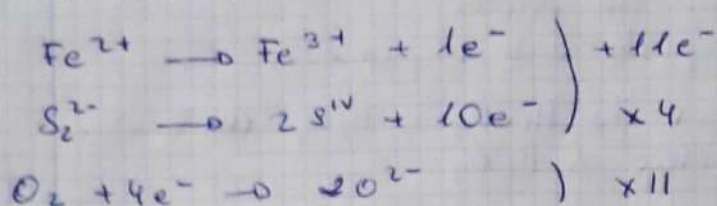 Fe²⁺ → Fe³⁺ + 1e⁻ ) + 11e⁻
S₂²⁻ → 2 S^IV + 10e⁻ ) x 4
O₂ + 4e⁻ → 2O²⁻ ) x 11